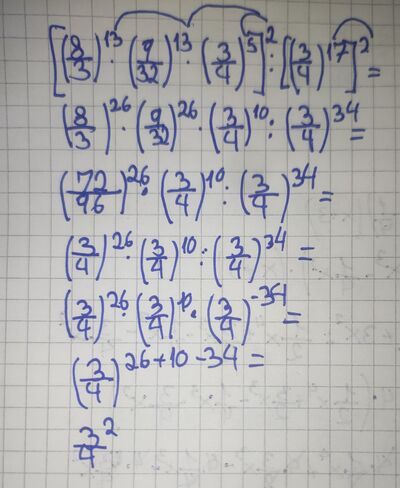 [(8/3)^13 · (9/32)^13 · (3/4)^5]^2 : [(3/4)^17]^2 =
(8/3)^26 · (9/32)^26 · (3/4)^10 : (3/4)^34 =
(72/96)^26 · (3/4)^10 : (3/4)^34 =
(3/4)^26 · (3/4)^10 : (3/4)^34 =
(3/4)^26 · (3/4)^10 · (3/4)^-34 =
(3/4)^26+10-34 =
3/4^2